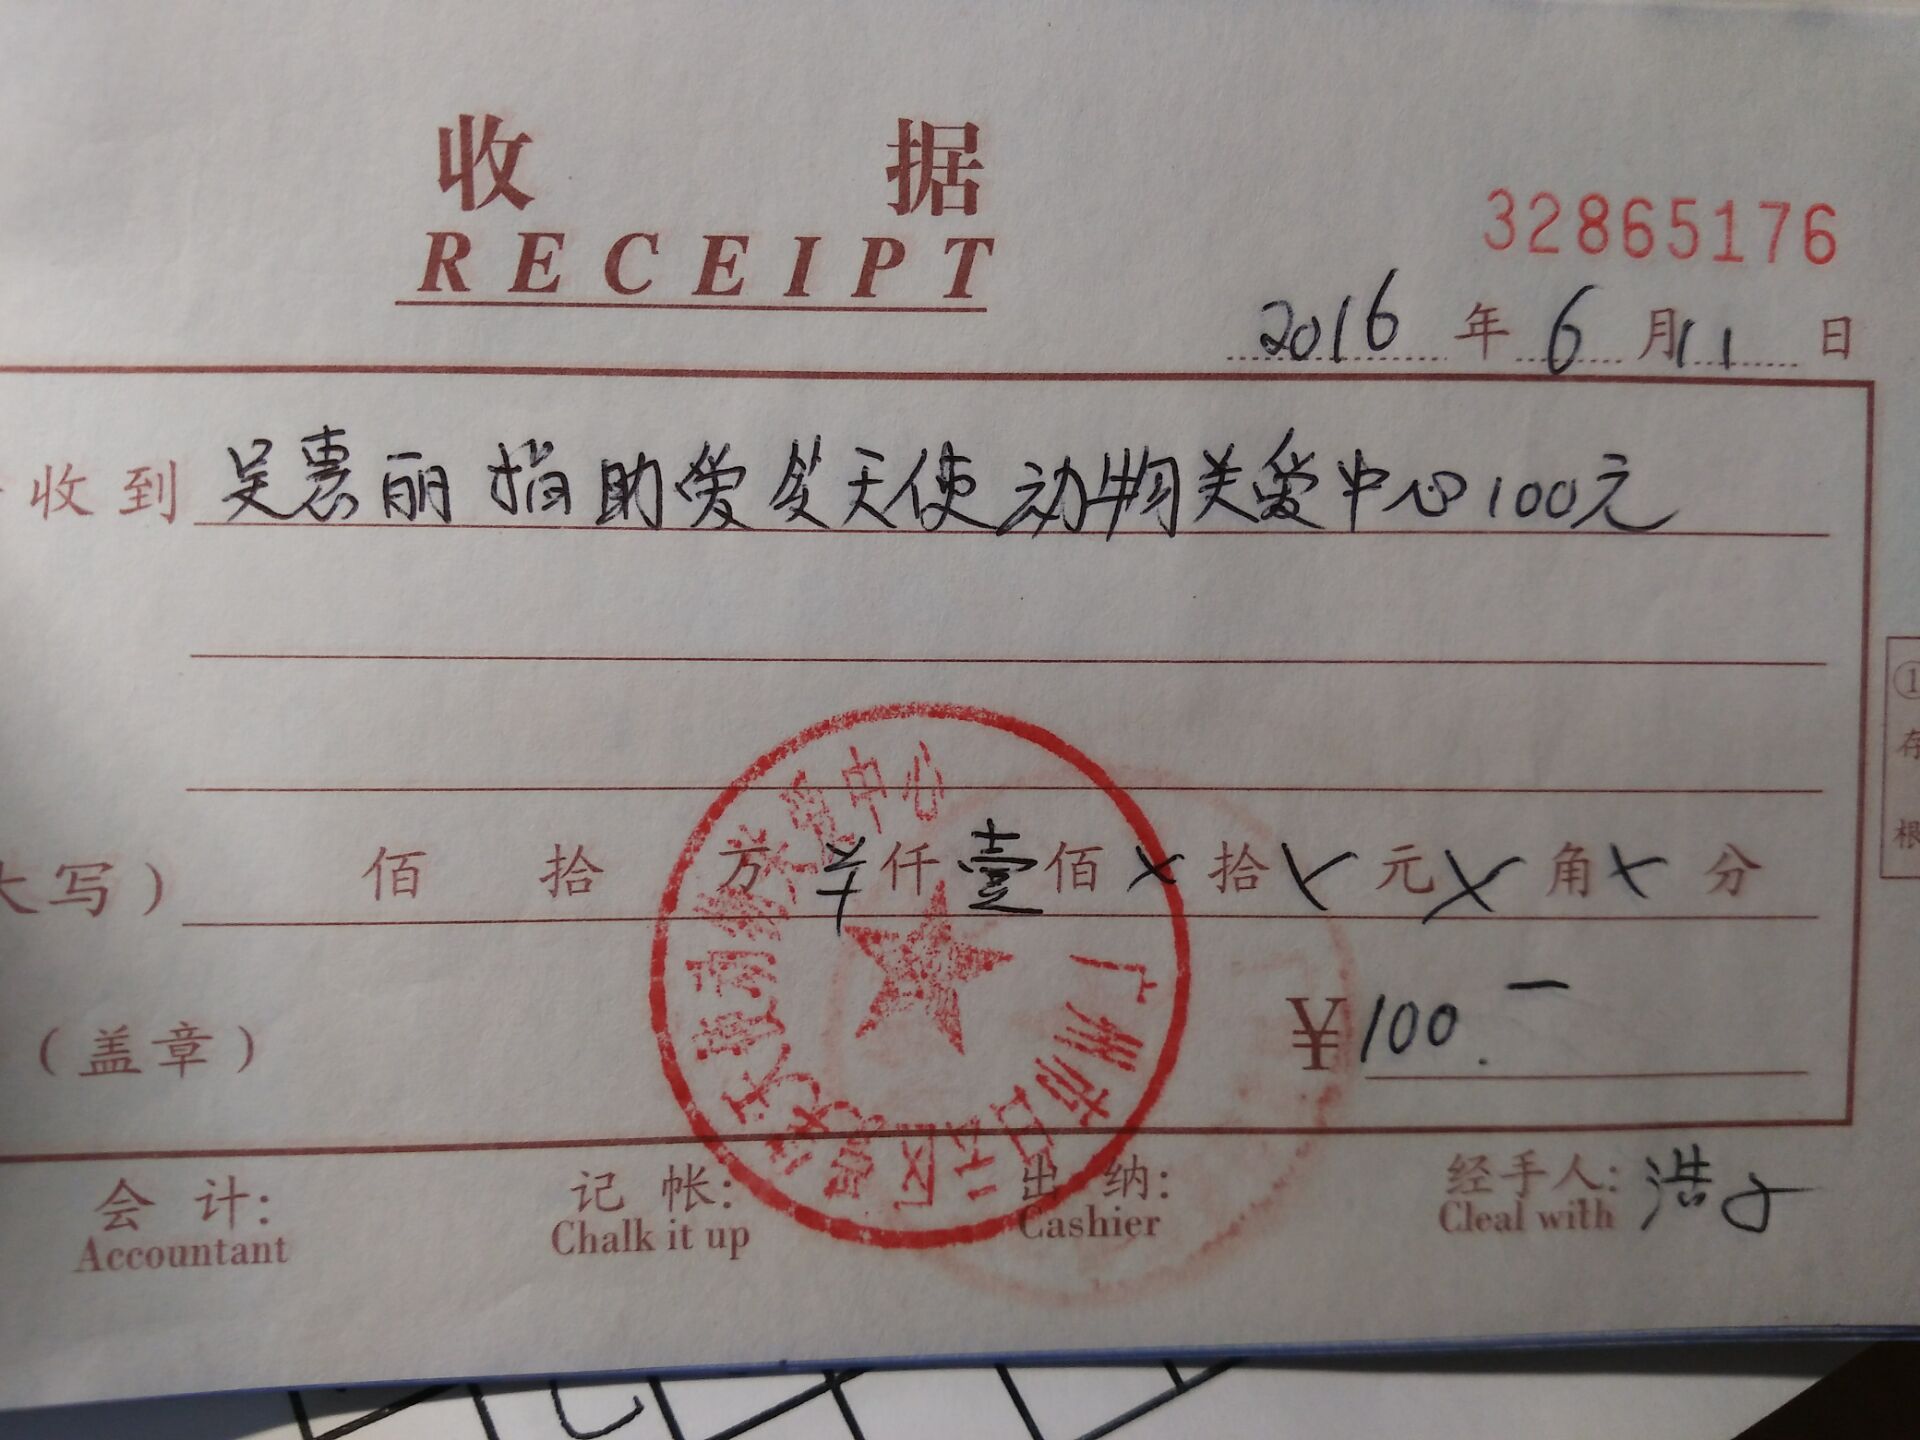 收 据
RECEIPT
32865176
2016 年 6 月 11 日
收到 吴惠丽捐助爱笑天使动物关爱中心100元
大写) 佰 拾 万 羊 仟 壹 佰 × 拾 × 元 × 角 × 分
(盖章)
¥100.—
广州市白云区爱笑天使动物关爱中心
会 计: 记 帐: 出 纳: 经手人: 浩子
Accountant Chalk it up Cashier Cleal with
① 存 根